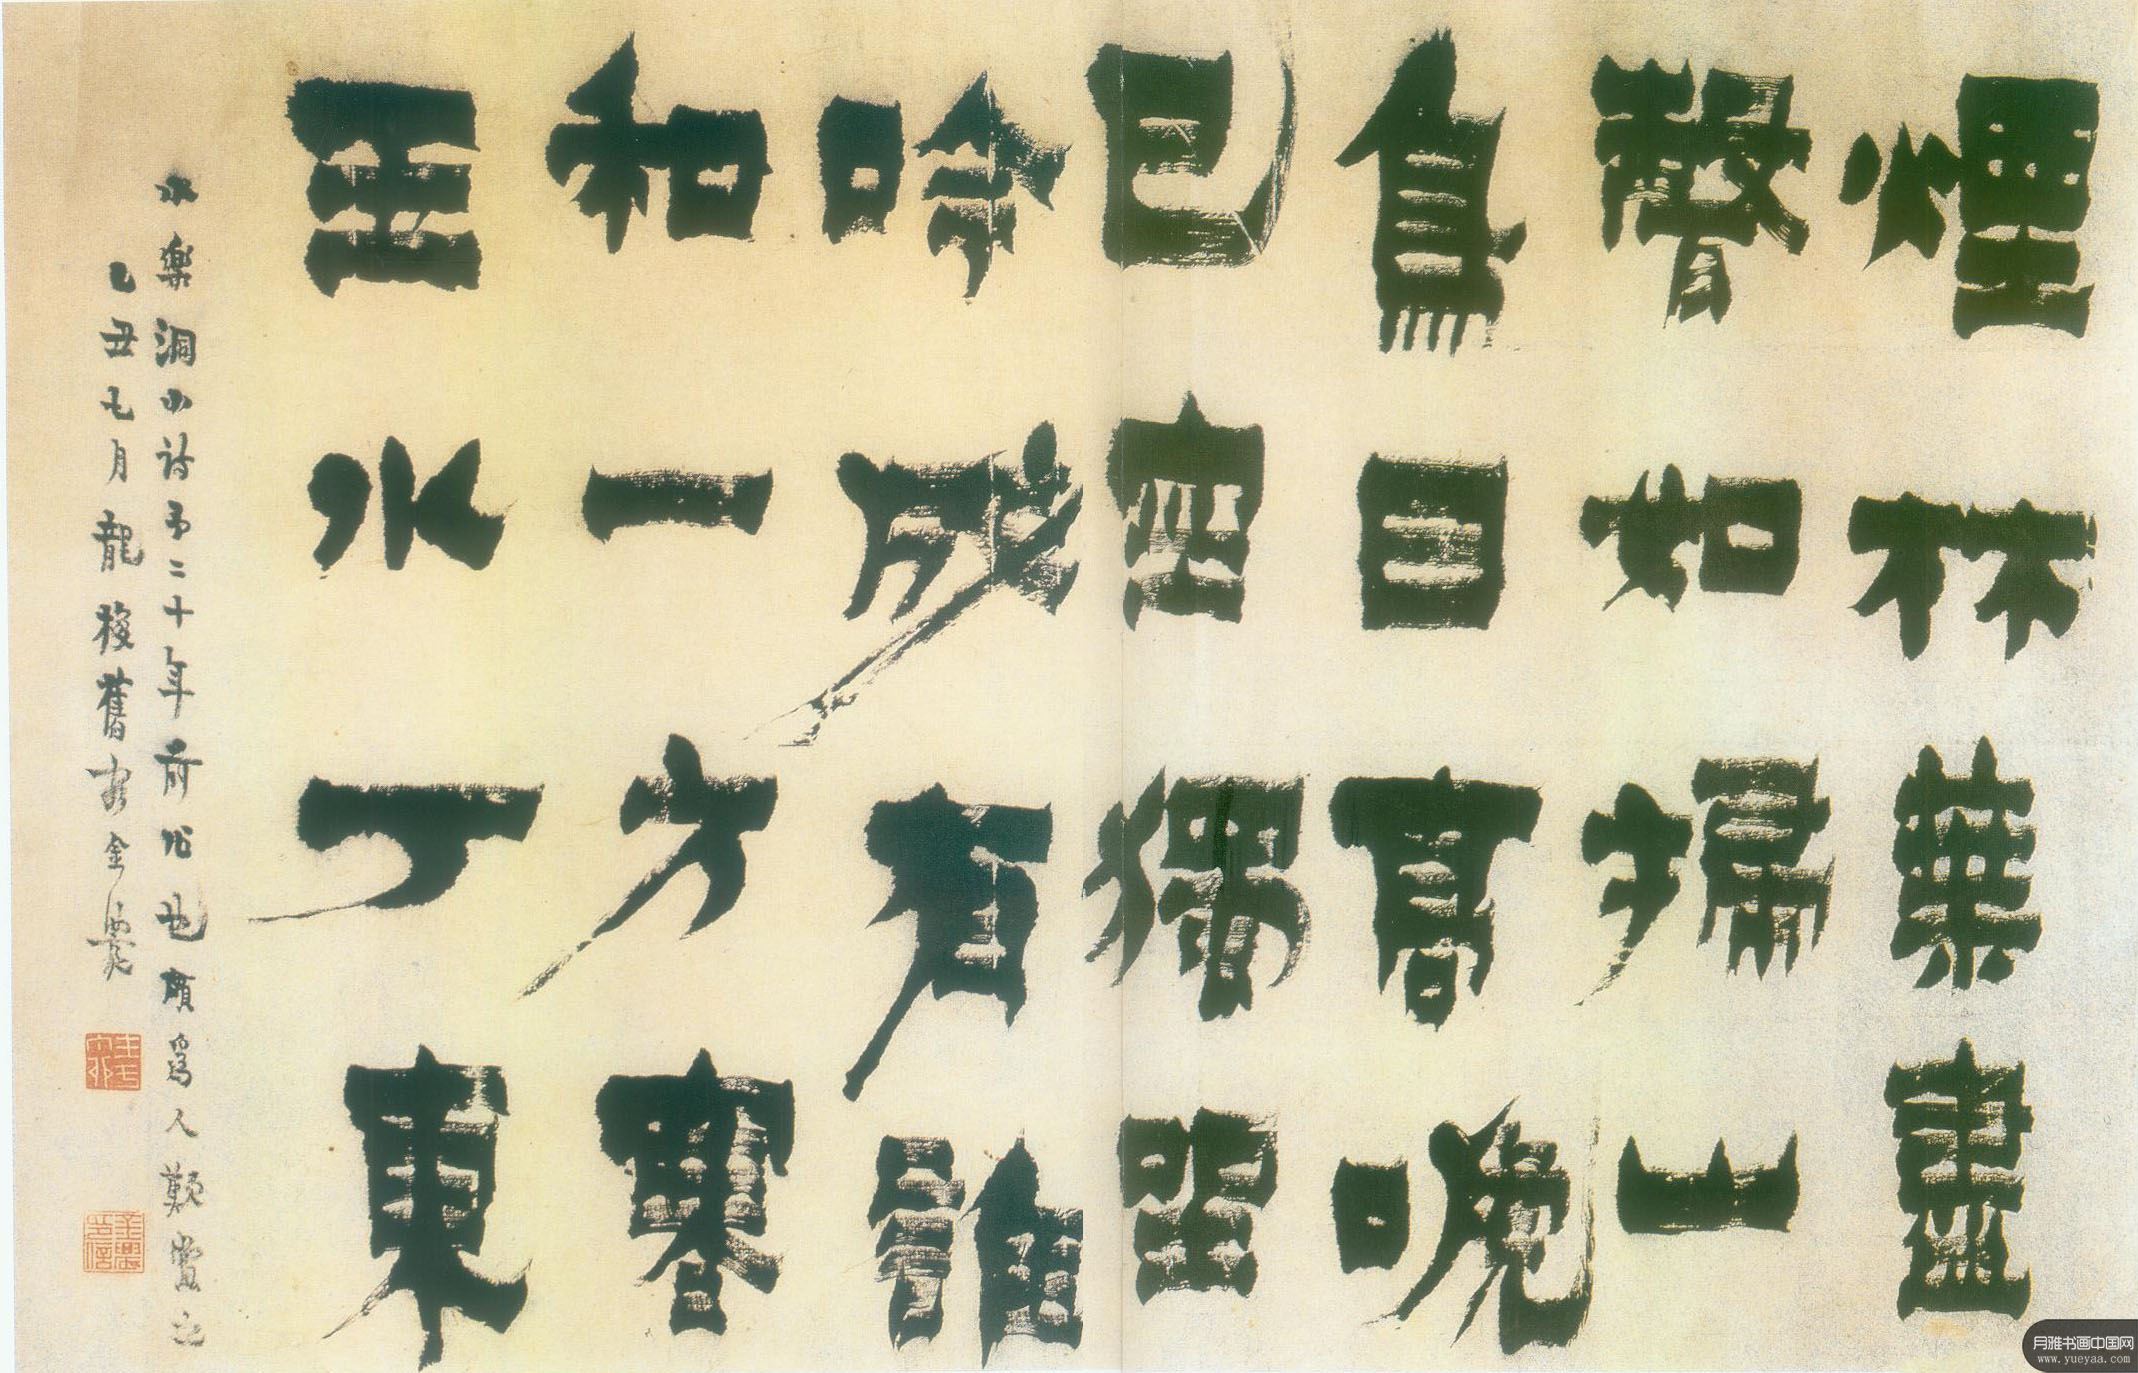 煙林葉盡
聲如掃山
鳥目高晚
已空獨坐
吟成有誰
和一方寒
玉水丁東
水樂洞小詩予二十年前作也頗爲人歎賞之
己丑七月龍梭舊客金農
月雅书画中国网
www.yueyaa.com